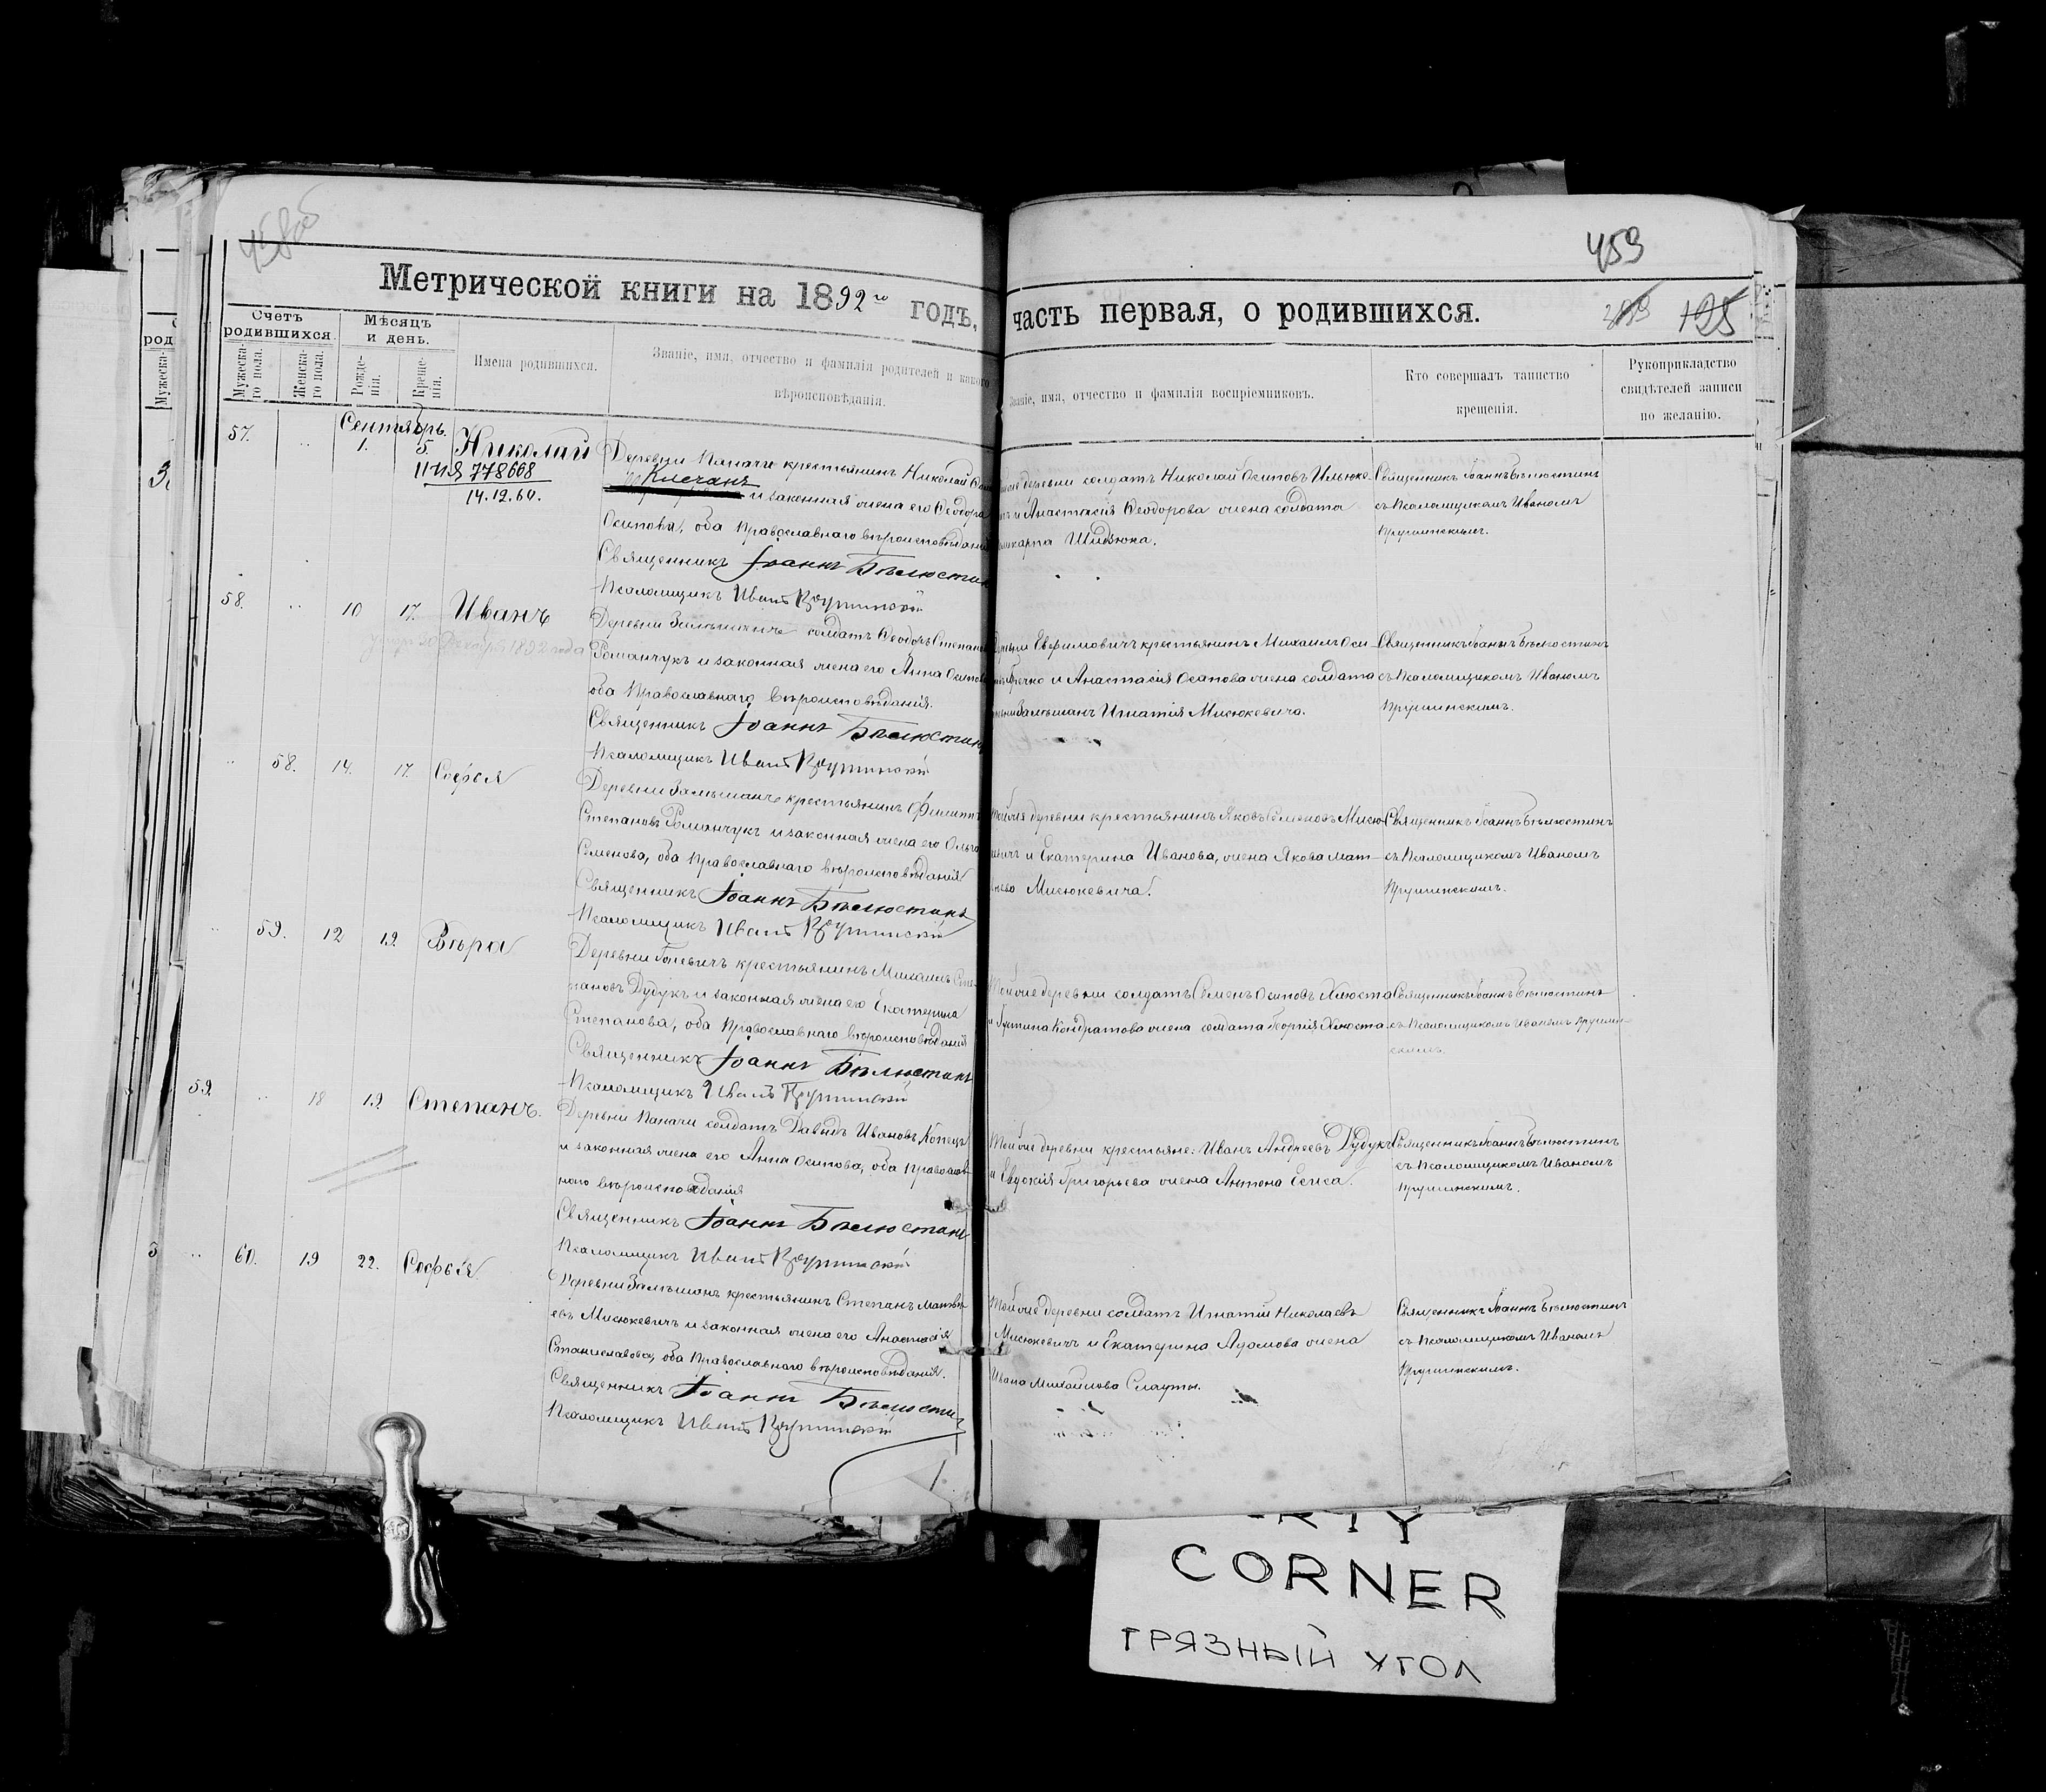 458об
459
Метрической книги на 1892го годъ,
часть первая, о родившихся.
125
Счетъ родившихся.
Мѣсяцъ и день.
Мужеска-го пола.
Женска-го пола.
Рожде-нія.
Креще-нія.
Имена родившихся.
Званіе, имя, отчество и фамилія родителей и какого
вѣроисповѣданія.
Званіе, имя, отчество и фамилія воспріемниковъ.
Кто совершалъ таинство
крещенія.
Рукоприкладство
свидѣтелей записи
по желанію.
Сентябрь.
57. 1. 5. Николай
II-ИЯ 778668
14.12.60.
Деревни Паначи крестьянинъ Николай
Клечанъ
и законная жена его Ѳеодора
Осипова, оба православнаго вѣроисповѣданія
Священникъ Іоаннъ Бѣлюстинъ
Псаломщикъ Иванъ
деревни солдатъ Николай Осиповъ
и Анастасія Ѳеодорова жена солдата
Шидзюка.
Священникъ Іоаннъ Бѣлюстинъ
съ Псаломщикомъ Иваномъ
58. 10 17. Иванъ
декабря 1892 года
Деревни солдатъ Ѳеодоръ Степановъ
Романчукъ и законная жена его Анна Осипова
оба Православнаго вѣроисповѣданія.
Священникъ Іоаннъ Бѣлюстинъ
Псаломщикъ Иванъ
Деревни Евфимовичъ крестьянинъ Михаилъ Оси-
и Анастасія Осипова жена солдата
Игнатія Мисюкевича.
Священникъ Іоаннъ Бѣлюстинъ
съ Псаломщикомъ Иваномъ
58. 14. 17. Софья
Деревни Замѣшанъ крестьянинъ Филиппъ
Степановъ Романчукъ и законная жена его Ольга
Семенова, оба православнаго вѣроисповѣданія
Священникъ Іоаннъ Бѣлюстинъ
Псаломщикъ Иванъ
Той же деревни крестьянинъ Яковъ Семеновъ Мисю-
кевичъ и Екатерина Иванова, жена Якова Мат-
Мисюкевича.
Священникъ Іоаннъ Бѣлюстинъ
съ Псаломщикомъ Иваномъ
59. 12 19. Вѣра
Деревни крестьянинъ Михаилъ Сте-
пановъ Дудукъ и законная жена его Екатерина
Степанова, оба православнаго вѣроисповѣданія
Священникъ Іоаннъ Бѣлюстинъ
Псаломщикъ Иванъ
Той же деревни солдатъ Семенъ Осиповъ Хлюста
Кондратова жена солдата Георгія Хлюста.
Священникъ Іоаннъ Бѣлюстинъ
съ Псаломщикомъ Иваномъ
скимъ.
59. 18 19. Степанъ.
Деревни Паначи солдатъ Давидъ Ивановъ Копецъ
и законная жена его Анна Осипова, оба православ-
наго вѣроисповѣданія
Священникъ Іоаннъ Бѣлюстинъ
Псаломщикъ Иванъ
Той же деревни крестьяне: Иванъ Андреевъ Дудукъ
и Евдокія Григорьева жена Антона
Священникъ Іоаннъ Бѣлюстинъ
съ Псаломщикомъ Иваномъ
60. 19 22. Софья
Деревни Замѣшанъ крестьянинъ Степанъ Матвѣ-
евъ Мисюкевичъ и законная жена его Анастасія
Станиславова, оба православнаго вѣроисповѣданія.
Священникъ Іоаннъ Бѣлюстинъ
Псаломщикъ Иванъ
Той же деревни солдатъ Игнатій Николаевъ
Мисюкевичъ и Екатерина Адамова жена
Ивана Михайлова Слауты.
Священникъ Іоаннъ Бѣлюстинъ
съ Псаломщикомъ Иваномъ
CORNER
ГРЯЗНЫЙ УГОЛ